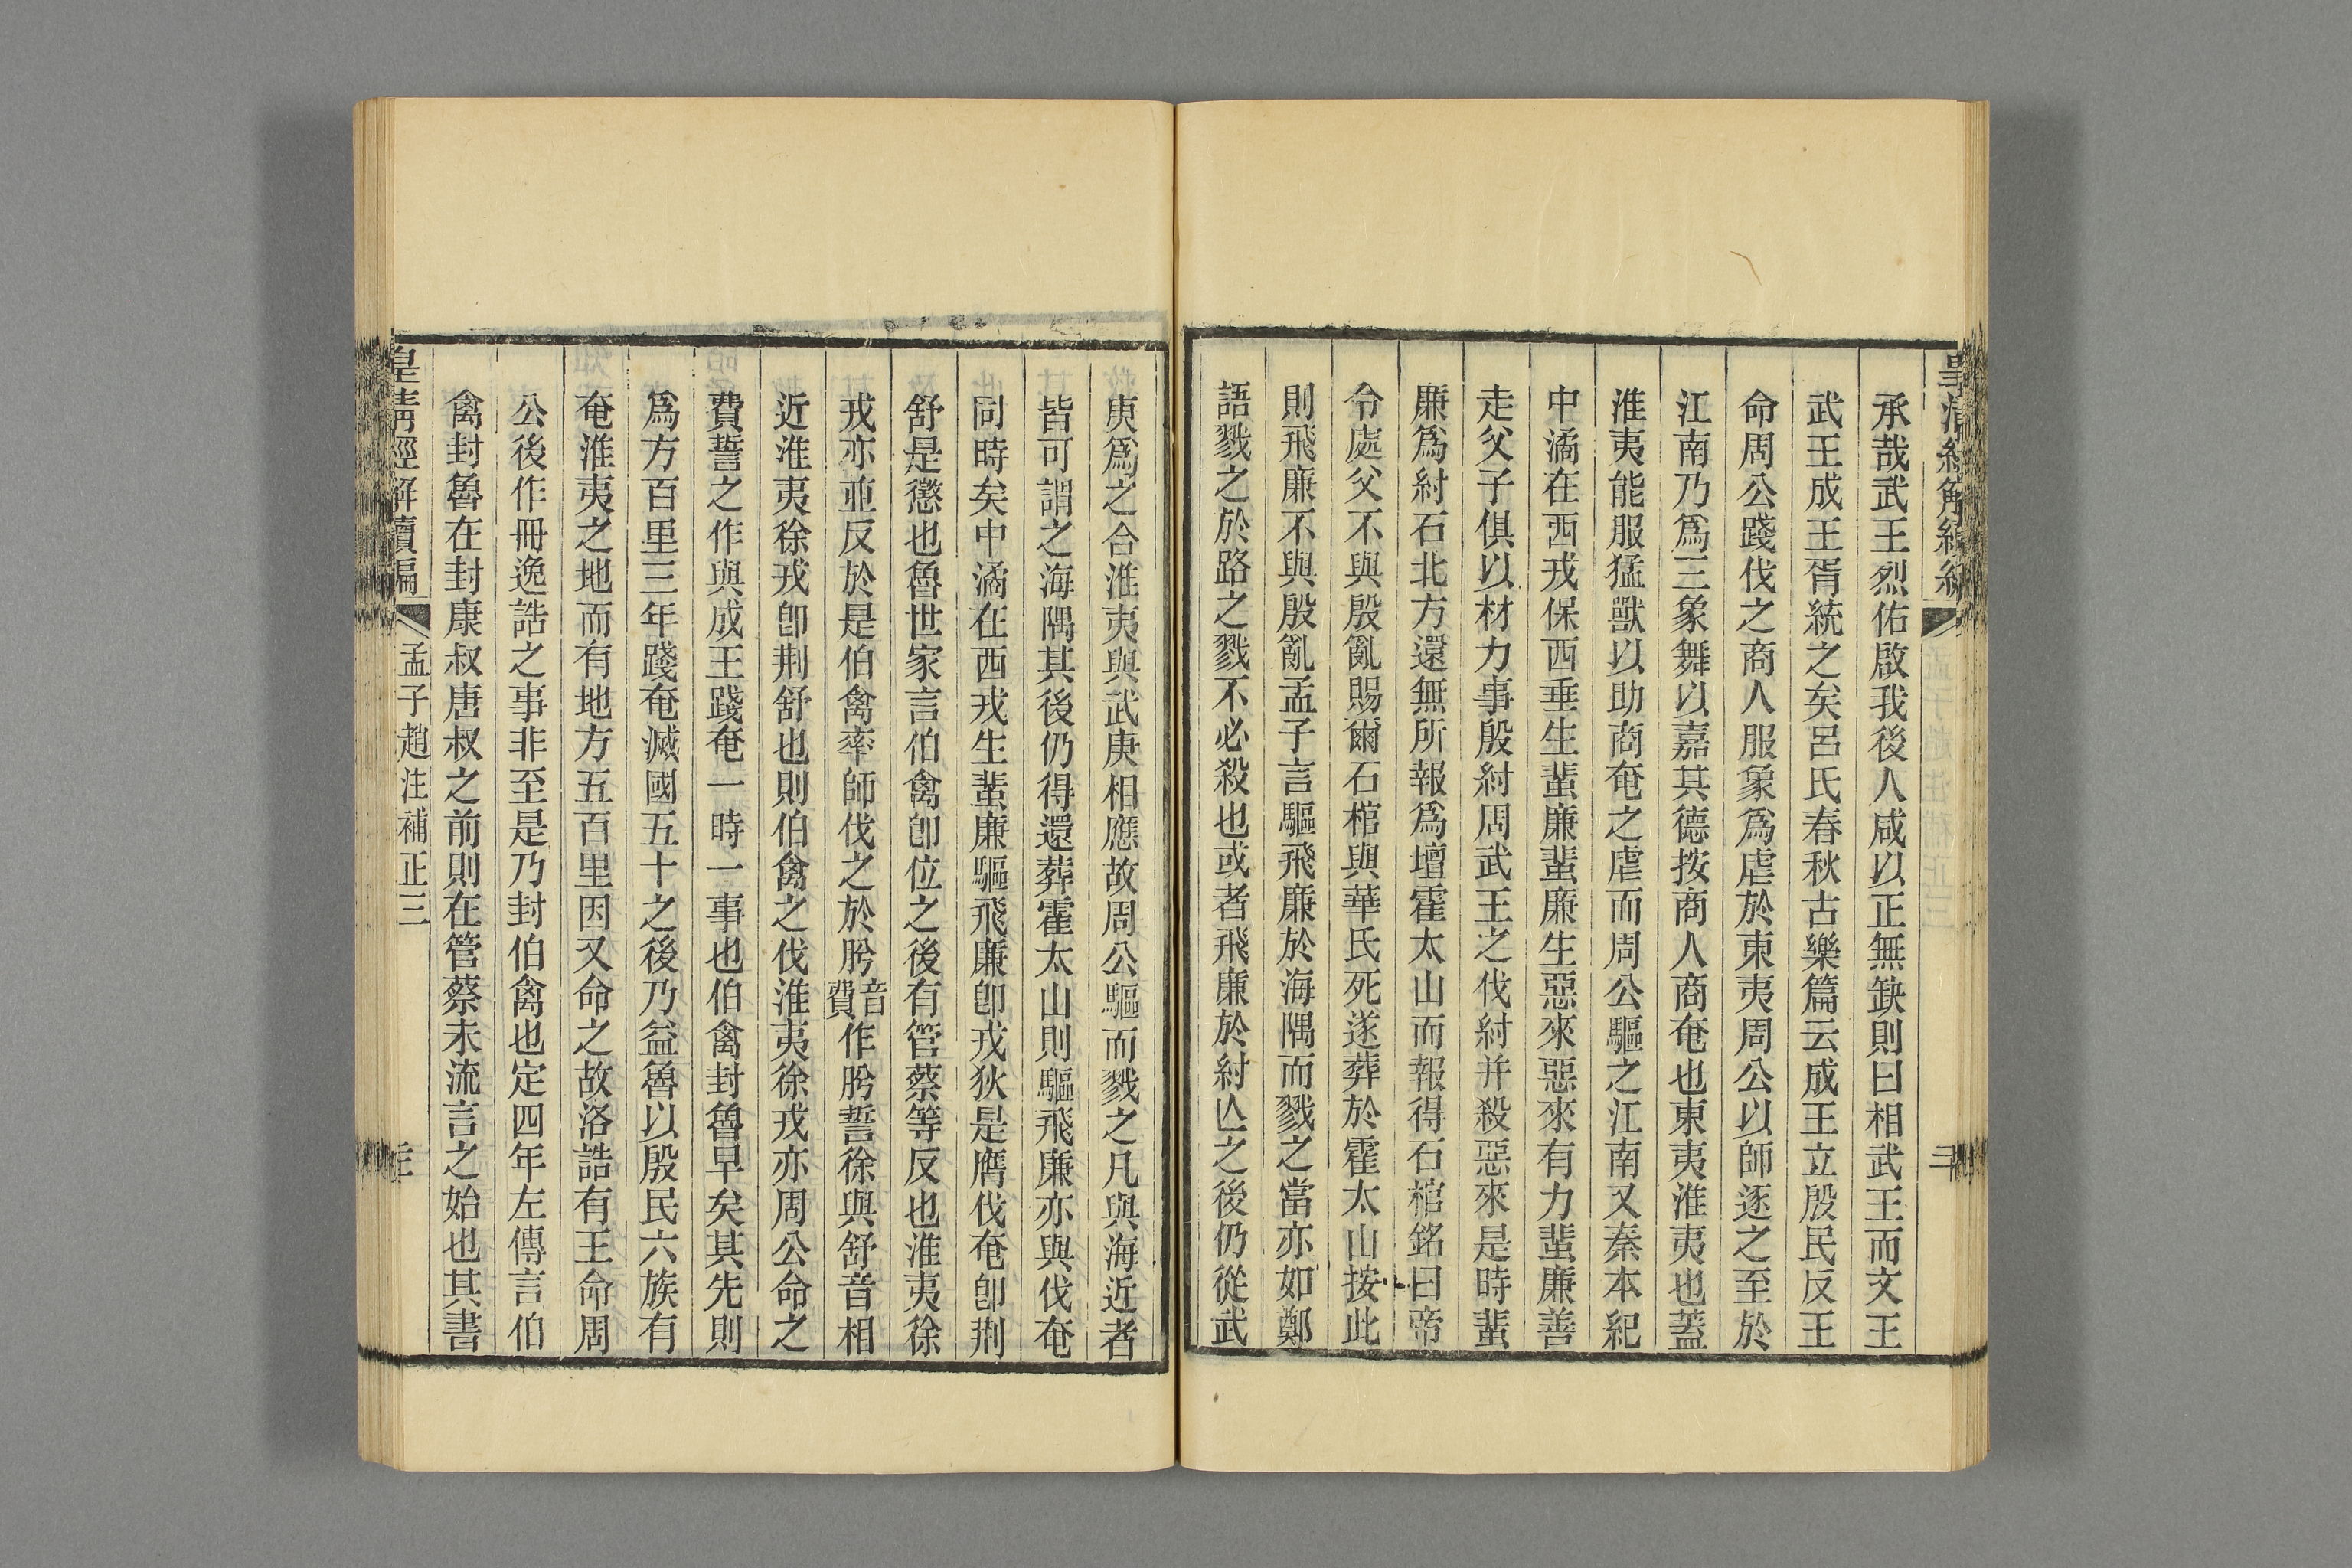 承哉武王烈佑啟我後人咸以正無缺則曰相武王而文王
武王成王胥統之矣呂氏春秋古樂篇云成王立殷民反王
命周公踐伐之商人服象爲虐於東夷周公以師逐之至於
江南乃爲三象舞以嘉其德按商人商奄也東夷淮夷也蓋
淮夷能服猛獸以助商奄之虐而周公驅之江南又秦本紀
中潏在西戎保西垂生蜚廉蜚廉生惡來惡來有力蜚廉善
走父子俱以材力事殷紂周武王之伐紂并殺惡來是時蜚
廉爲紂石北方還無所報爲壇霍太山而報得石棺銘曰帝
令處父不與殷亂賜爾石棺與華氏死遂葬於霍太山按此
則飛廉不與殷亂孟子言驅飛廉於海隅而戮之當亦如鄭
語戮之於路之戮不必殺也或者飛廉於紂亾之後仍從武
庚爲之合淮夷與武庚相應故周公驅而戮之凡與海近者
皆可謂之海隅其後仍得還葬霍太山則驅飛廉亦與伐奄
同時矣中潏在西戎生蜚廉驅飛廉卽戎狄是膺伐奄卽荆
舒是懲也魯世家言伯禽卽位之後有管蔡等反也淮夷徐
戎亦並反於是伯禽率師伐之於肹音費作肹誓徐與舒音相
近淮夷徐戎卽荆舒也則伯禽之伐淮夷徐戎亦周公命之
費誓之作與成王踐奄一時一事也伯禽封魯早矣其先則
爲方百里三年踐奄滅國五十之後乃益魯以殷民六族有
奄淮夷之地而有地方五百里因又命之故洛誥有王命周
公後作冊逸誥之事非至是乃封伯禽也定四年左傳言伯
禽封魯在封康叔唐叔之前則在管蔡未流言之始也其書
皇清經解續編 孟子趙注補正三 三